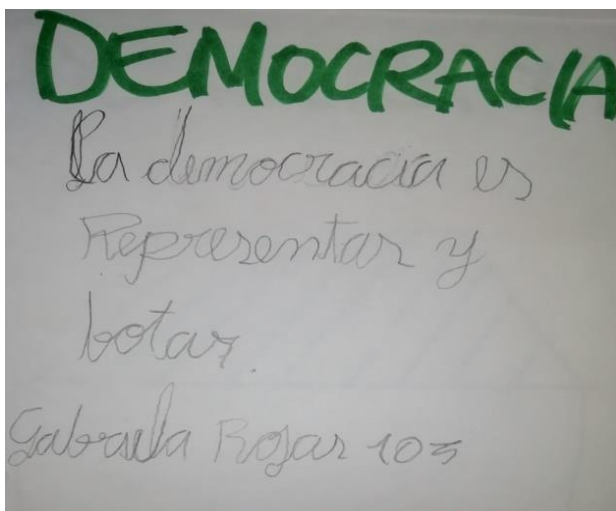 DEMOCRACIA
La democracia es
Representar y
botar.
Gabriela Rojas 103